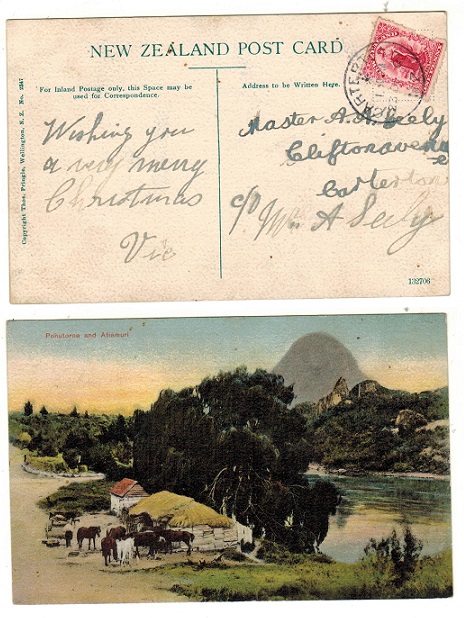 NEW ZEALAND POST CARD.
For Inland Postage only, this Space may be
used for Correspondence.
Address to be Written Here.
Copyright Thos. Pringle, Wellington, N.Z. No. 2247
Wishing you
a very merry
Christmas
Vic
Master A. Seely
Cliftonavenue
Carterton
c/o Mrs A Seely
CARTERTON
132706
Pohuturoa and Atiamuri